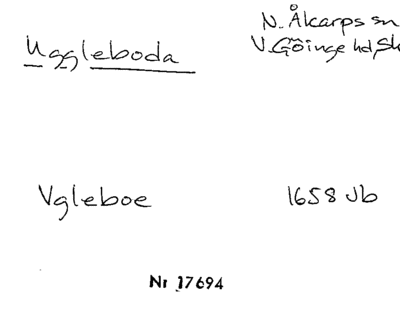 N. Åkarps sn
Uggleboda
V. Göinge hd, Sk
Vgleboe 1658 Jb
Nr 17694